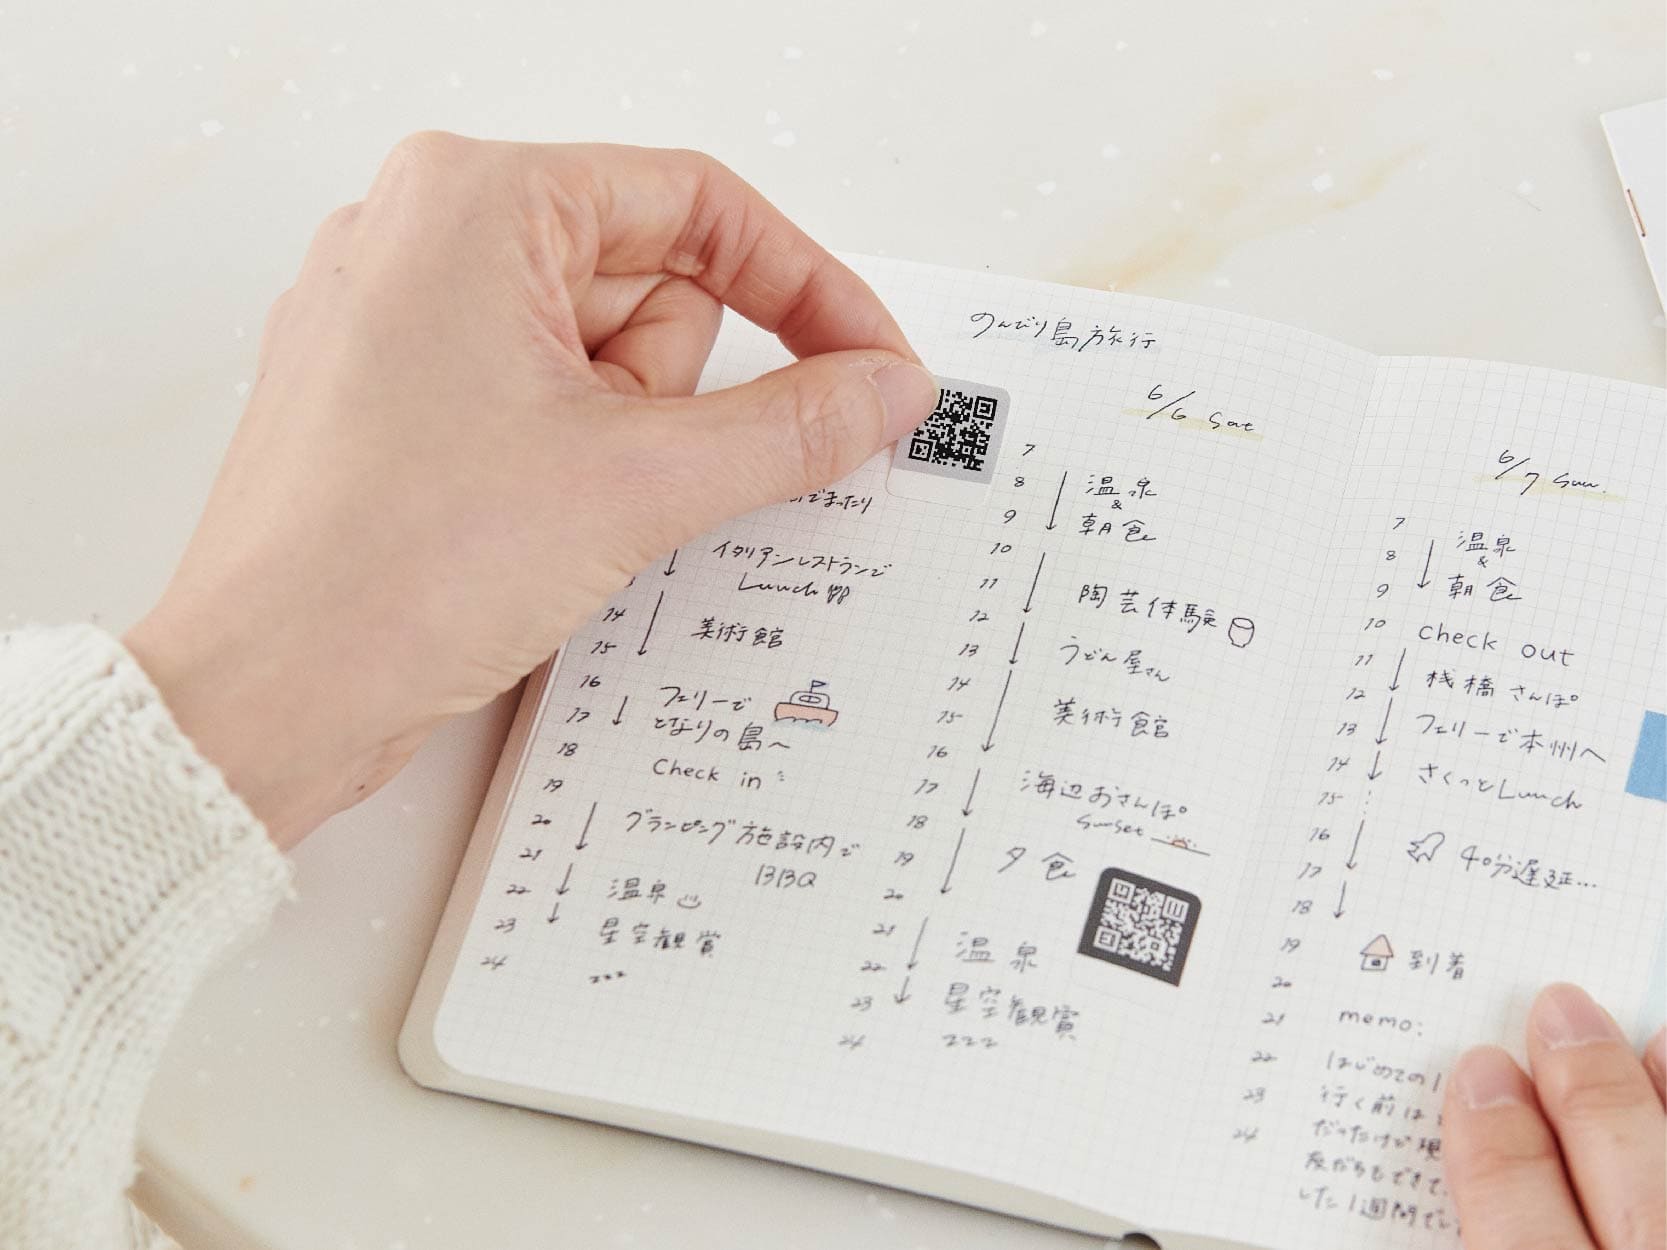 のんびり島旅行
でまったり
イタリアンレストランで
Lunch
14
美術館
15
16
フェリーで
17
となりの島へ
18
Check in
19
20
グランピング施設内で
BBQ
21
22
温泉
23
星空観賞
24
zzz
6/6 Sat
7
8
温泉
&
9
朝食
10
11
陶芸体験
12
13
うどん屋さん
14
15
美術館
16
17
海辺おさんぽ
sunset
18
19
夕食
20
21
温泉
22
23
星空観賞
24
zzz
6/7 Sun.
7
8
温泉
&
9
朝食
10
check out
11
桟橋さんぽ
12
13
フェリーで本州へ
14
さくっとLunch
15
16
40分遅延...
17
18
19
到着
20
21
memo:
22
はじめての
23
行く前は
24
だったけど現
友だちもできて、
した1週間でし